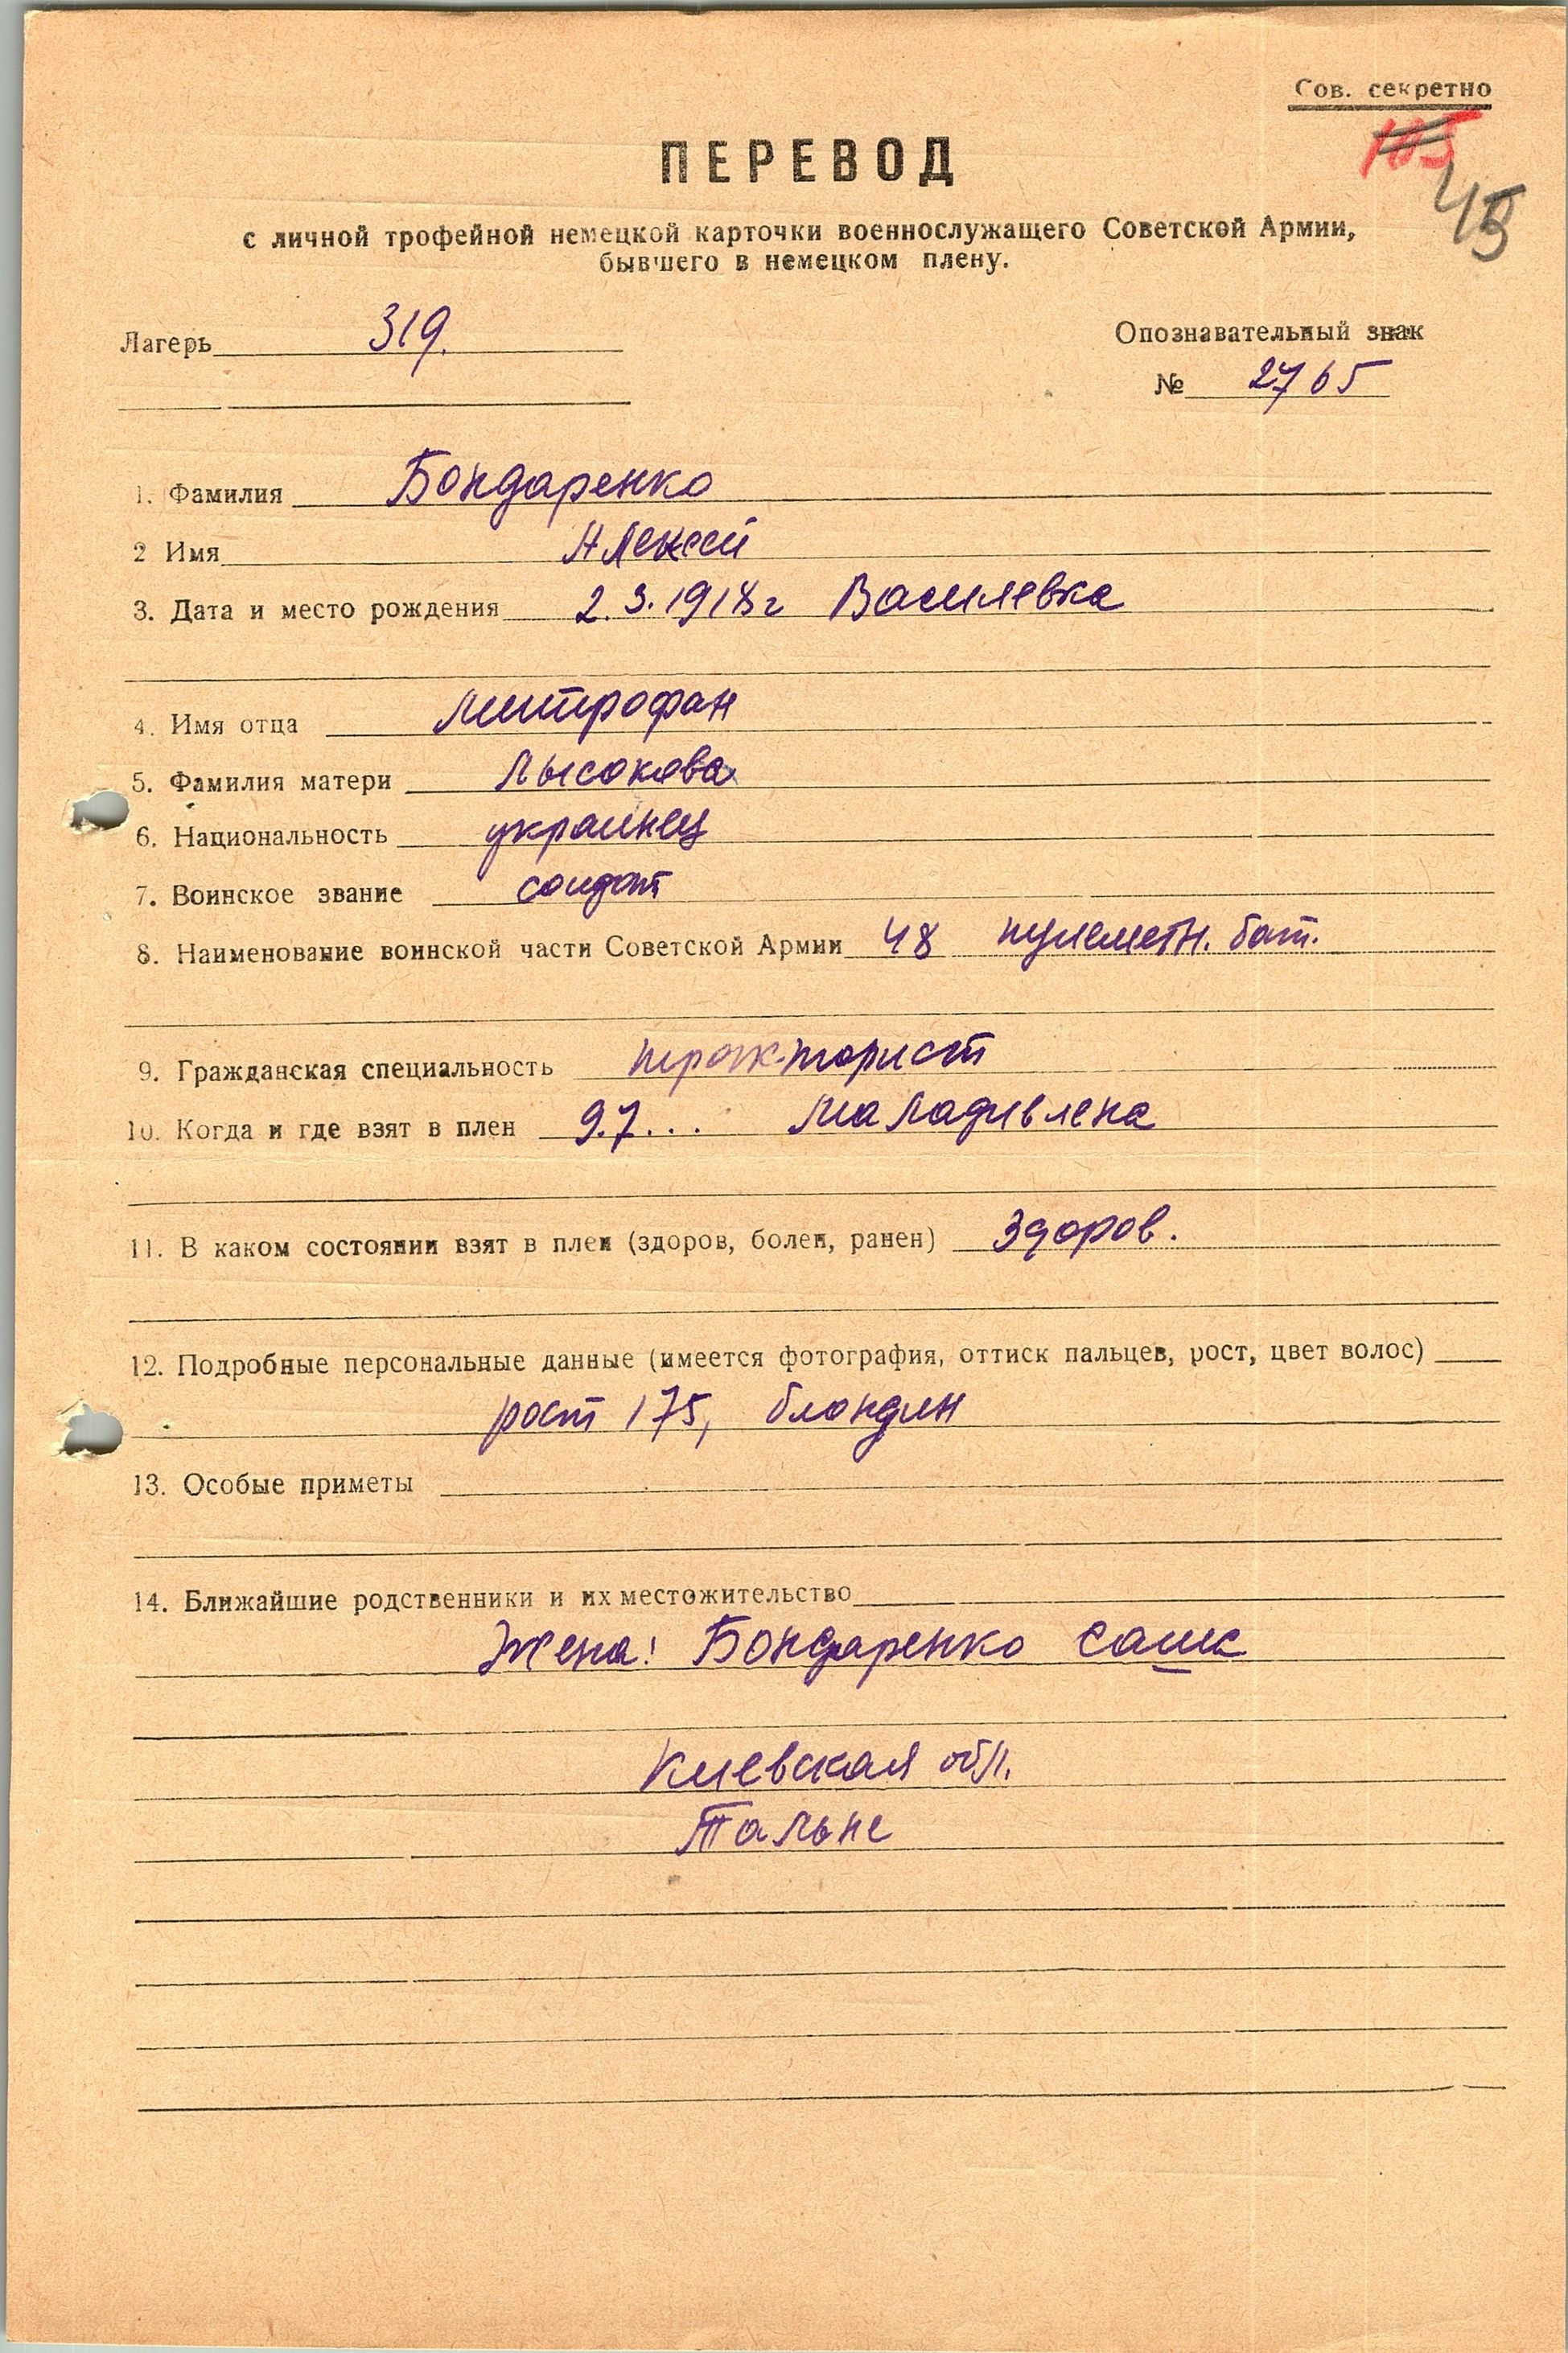 Сов. секретно
105
45
ПЕРЕВОД
с личной трофейной немецкой карточки военнослужащего Советской Армии,
бывшего в немецком плену.
Лагерь 319.
Опознавательный знак
№ 2765
1. Фамилия Бондаренко
2 Имя Алексей
3. Дата и место рождения 2.3.1918г Василевка
4. Имя отца Митрофан
5. Фамилия матери Лысокова
6. Национальность украинец
7. Воинское звание солдат
8. Наименование воинской части Советской Армии 48 пулеметн. бат.
9. Гражданская специальность тракторист
10. Когда и где взят в плен 9.7... Маладивлена
11. В каком состоянии взят в плен (здоров, болен, ранен) Здоров.
12. Подробные персональные данные (имеется фотография, оттиск пальцев, рост, цвет волос)
рост 175, блондин
13. Особые приметы
14. Ближайшие родственники и их местожительство
Жена: Бондаренко Саша
Киевская обл.
Тальне